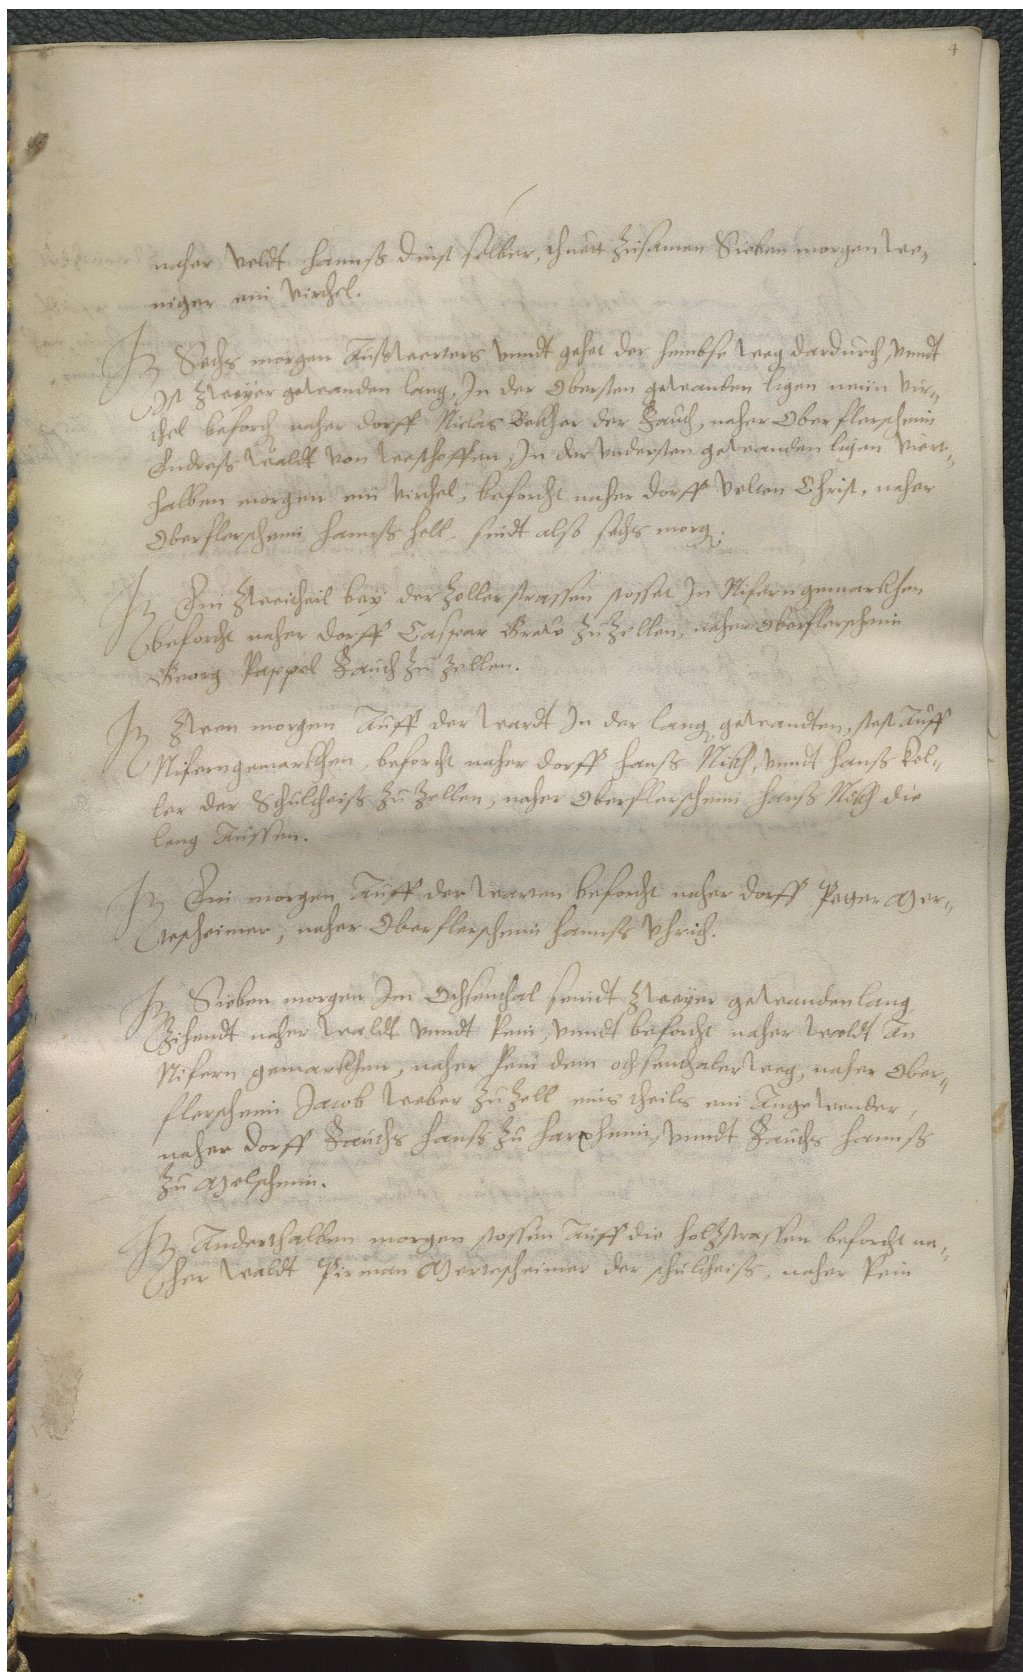 4
naher Veldt Hannß Dinst selber, thuett zusamen Sieben morgen we¬
niger ein virthel.
It Sechs morgen Außwerters vnndt gehet der Heimbser weg dardurch, vnndt
Ist zweyer gewanden lang, In der Obersten gewanden ligen neün vir¬
thel beforch naher dorff Niclas Becker der Jauch, naher Oberflersheim
Endreß Waldt von Westhoffen, In der vndersten gewanden ligen viert¬
halben morgen ein virthel, beforcht naher dorff Velten Christ, naher
Oberflersheim Hannß Hell. sindt also sechs morg.
It Ein Zweitheil bey der Zellerstrassen stosset In Nifern gemarkhen
beforcht naher dorff Caspar Brato zu Zellen, naher Oberflersheim
Georg Pappel Jauch zu Zellen.
It Zwen morgen Auff der Wardt In der lang gewandten, stest Auff
Niferngemarckhen, beforcht naher dorff Hanß Nickh, vnndt Hanß Kel¬
ler der Schultheiß zu Zellen, naher Oberflersheim Hanß Nickh die
leng Aussen.
It Ein morgen Auff der Warten beforcht naher dorff Peter Mer¬
tesheimer, naher Oberflersheim Hannß Vhrich.
It Sieben morgen Im Ochsenthal seindt zweyer gewanden lang
Zihendt naher Waldt vnndt Rein, vnndt beforcht naher Waldt An
Nifern gemarckhen, naher Rein dem ochsenthaler weg, naher Ober¬
flersheim Jacob Weber zu Zell eins theils ein Angewender,
naher dorff Jauchs Hanß zu Harxheim, vnndt Jauchs Hannß
zu Melsheim.
It Anderthalben morgen stossen Auff die Holtzstrassen beforcht na¬
her Waldt Pirman Mertesheimer der schultheiß, naher Rein